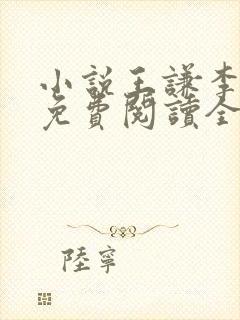 小說王謙李
免費閱讀全
陸寧